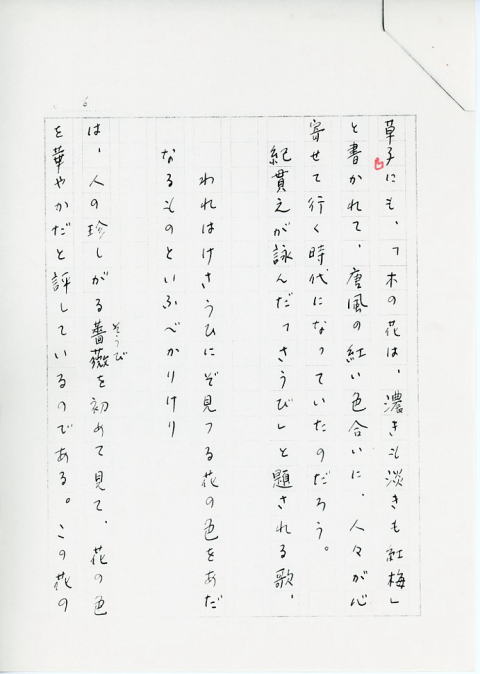 草子にも、「木の花は、濃きも淡きも紅梅」
と書かれて、唐風の紅い色合いに、人々が心
寄せて行く時代になっていたのだろう。
紀貫之が詠んだ「さうび」と題される歌、
われはけさうひにぞ見つる花の色をあだ
なるものといふべかりけり
は、人の珍しがる薔薇を初めて見て、花の色
そうび
を華やかだと評しているのである。この花の